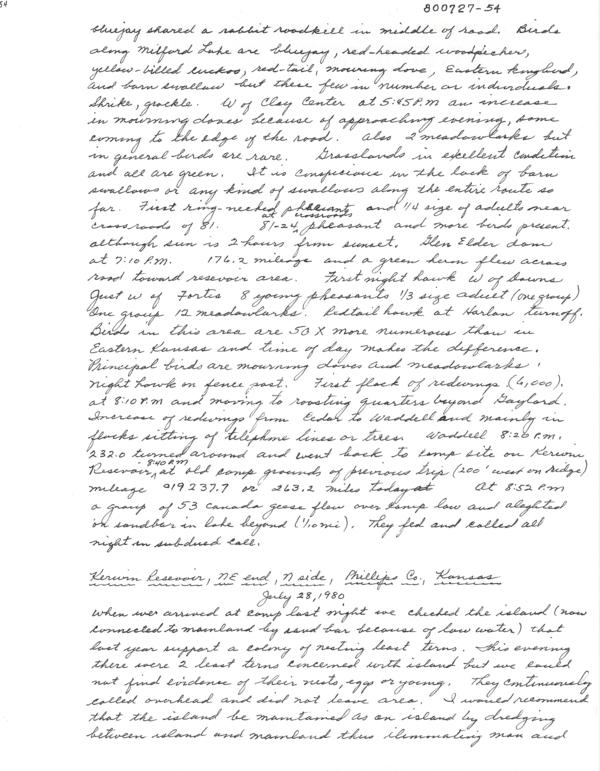 54
800727-54
bluejay shared a rabbit roadkill in middle of road. Birds
along Milford Lake are bluejay, red-headed woodpecker,
yellow-billed cuckoo, red-tail, mourning dove, Eastern kingbird,
and barn swallow but these few in number or individuals.
Shrike, grackle. W of Clay Center at 5:45 P.M an increase
in mourning doves because of approaching evening, some
coming to the edge of the road. Also 2 meadowlarks but
in general birds are rare. Grasslands in excellent condition
and all are green. It is conspicious in the lack of barn
swallows or any kind of swallows along the entire route so
far. First ring-necked pheasants and 1/4 size of adults near
crossroads of 81. 81-24 at crossroads, pheasant and more birds present.
although sun is 2 hours from sunset. Glen Elder dam
at 7:10 P.M. 176.2 mileage and a green hern flew across
road toward resevoir area. First night hawk W of Downs
Just W of Fortis 8 young pheasants 1/3 size adult (one group)
One group 12 meadowlarks. Redtail hawk at Harlan turnoff.
Birds in this area are 50 X more numerous than in
Eastern Kansas and time of day makes the difference.
Principal birds are mourning doves and meadowlarks.
Night hawk on fence post. First flock of redwings (6,000).
at 8:10 P.M and moving to roosting quarters beyond Gaylord.
Increase of redwings from Cedar to Waddell and mainly in
flocks sitting of telephone lines or trees. Waddell 8:20 P.M.
232.0 turned around and went back to camp site on Kerwin
Resevoir, 8:40 P.M at old camp grounds of previous trip (200' west on ridge)
mileage 919237.7 or 263.2 miles today at At 8:52 P.M
a group of 53 canada geese flew over camp low and alighted
on sandbar in lake beyond (1/10 mi). They fed and called all
night in subdued call.
Kerwin Resevoir, NE end, N side, Phillips Co., Kansas
July 28, 1980
When wer arrived at camp last night we checked the island (now
connected to mainland by sand bar because of low water) that
last year support a colony of nesting least terns. This evening
there were 2 least terns concerned with island but we could
not find evidence of their nests, eggs or young. They continuously
called overhead and did not leave area. I would recommend
that the island be maintained as an island by dredging
between island and mainland thus iliminating man and